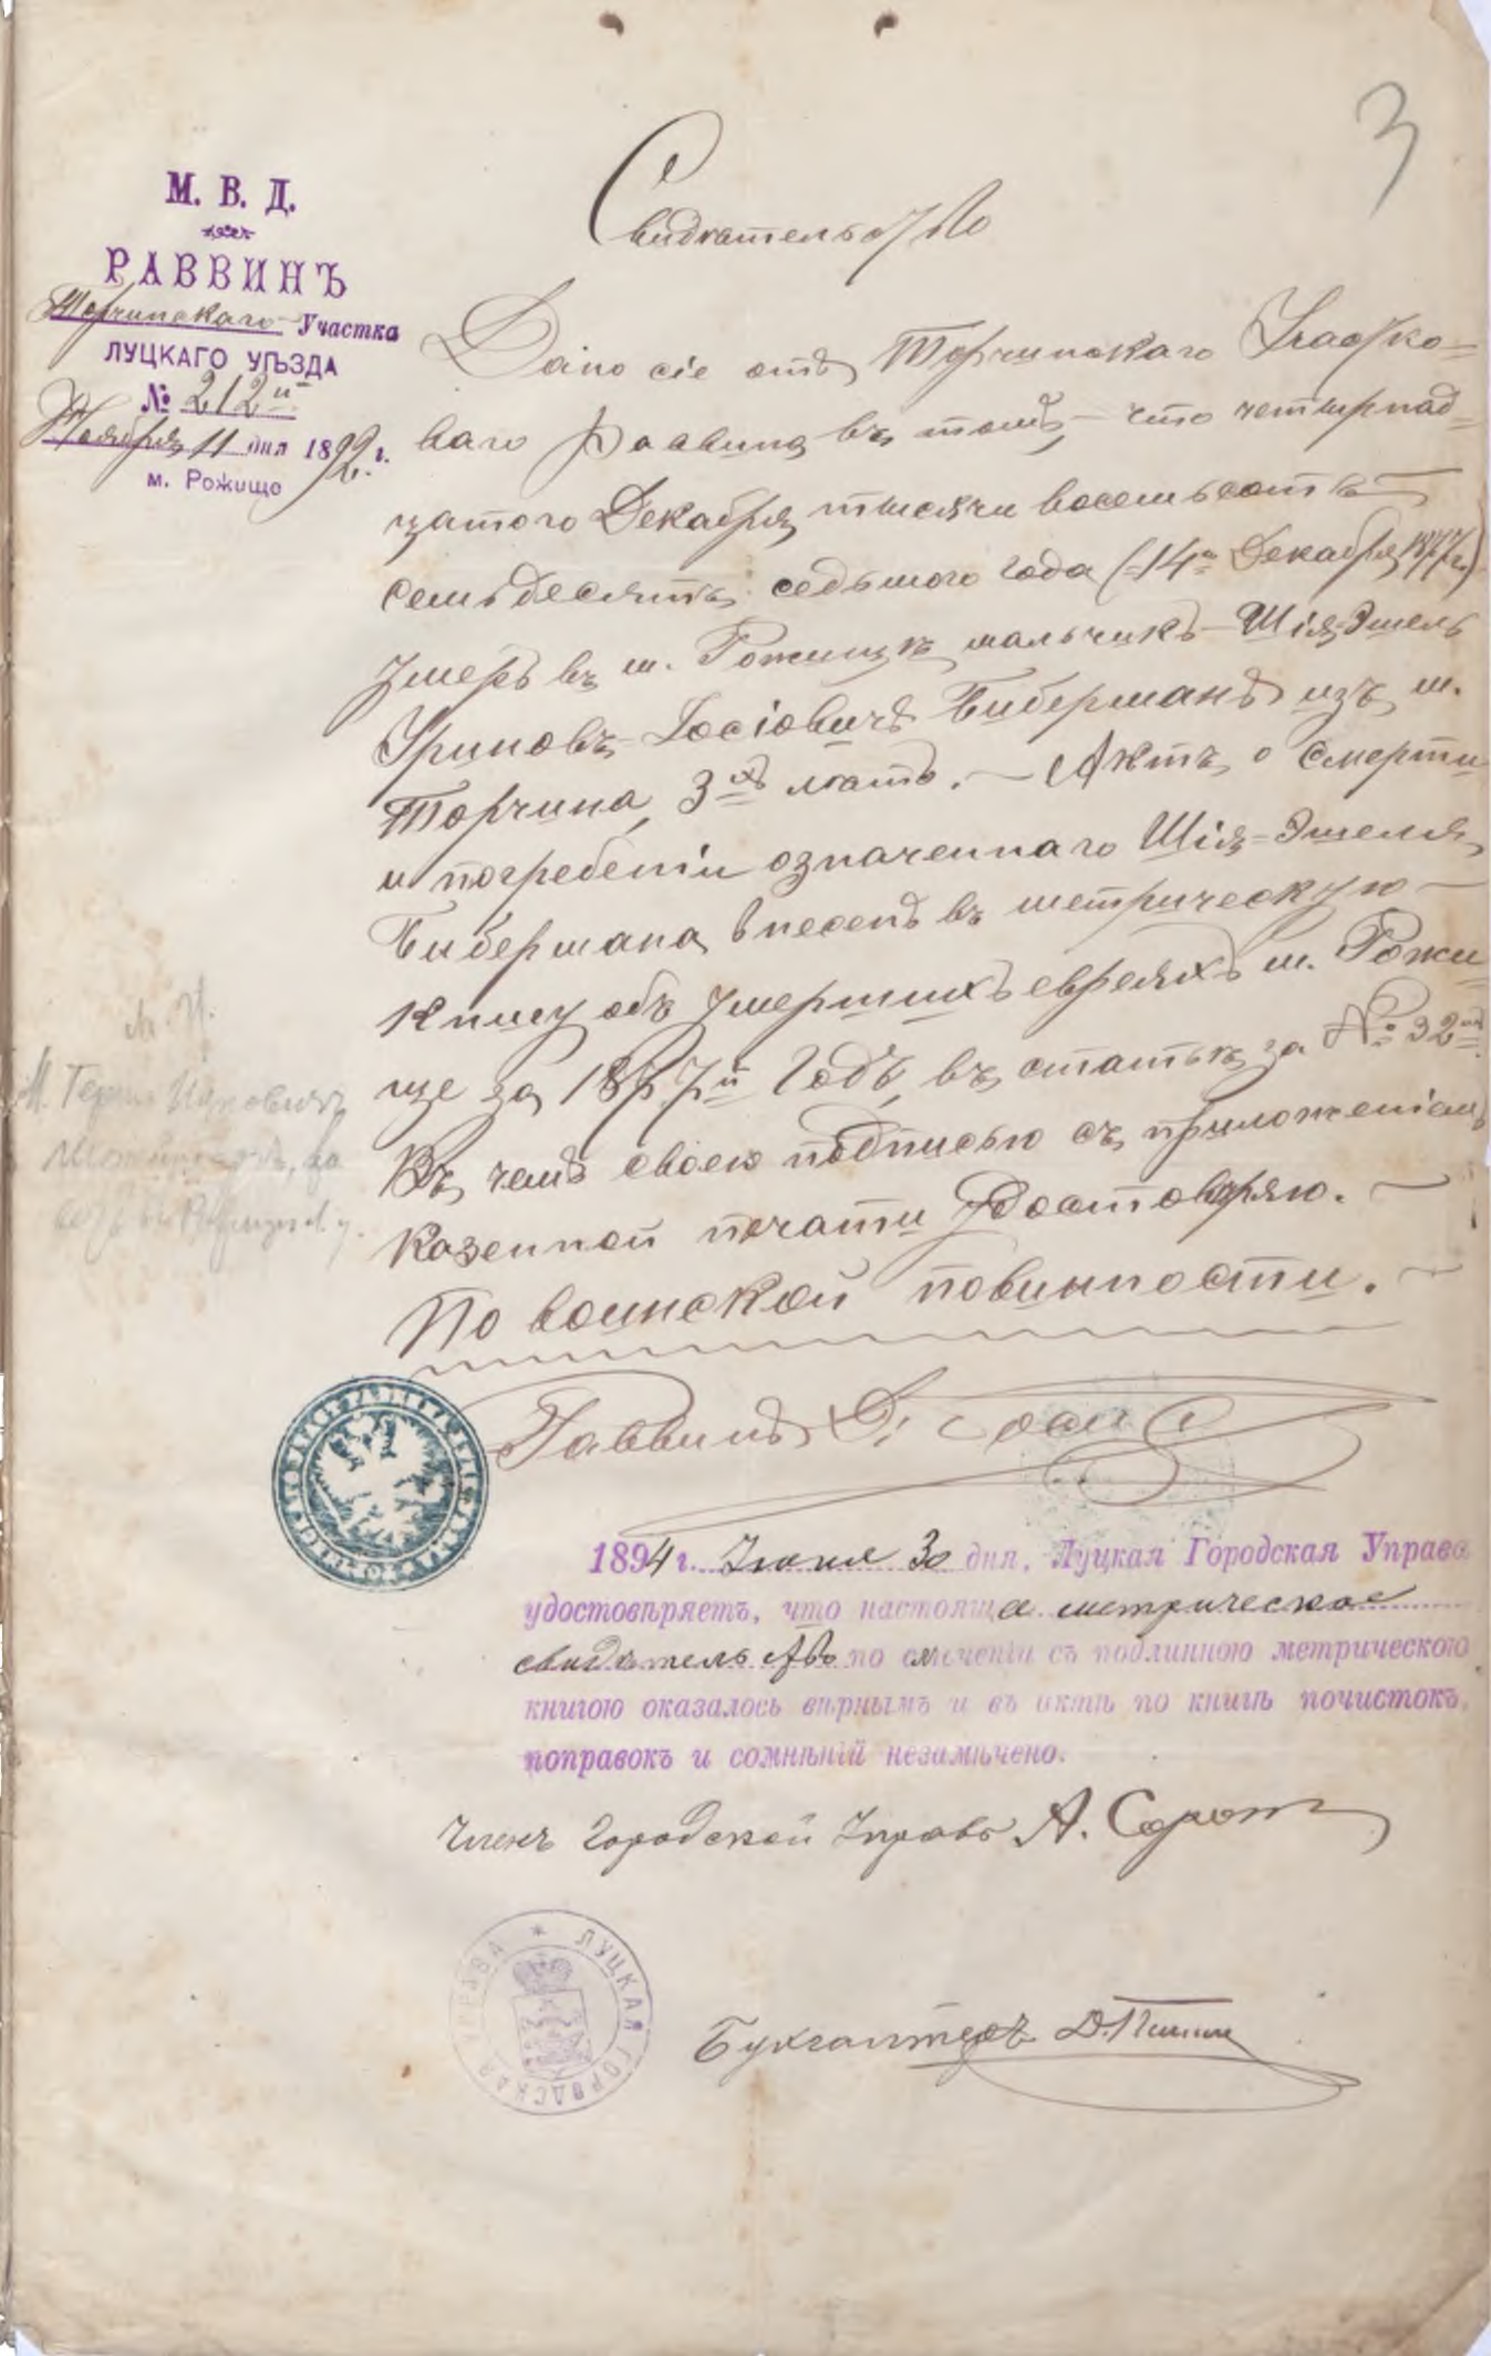 3
М. В. Д.
РАВВИНЪ
Торчинскаго Участка
ЛУЦКАГО УѢЗДА
№ 212й
Ноября 11 дня 1892 г.
м. Рожище
Свидѣтельство
Дано сіе отъ Торчинскаго Участко=
ваго Раввина въ томъ, что четырнад=
цатого Декабря тысяча восемьсотъ
семьдесятъ седьмого года (=14го Декабря 1877 г.)
умеръ въ м. Рожищѣ мальчикъ Шія-Эшель
Іосіовичъ Биберманъ изъ м.
Торчина, 3хъ лѣтъ. — Актъ о смерти
и погребеніи означеннаго Шія=Эшеля
Бибермана внесенъ въ метрическую
книгу объ умершихъ евреяхъ м. Рожи=
ще за 1877й годъ, въ статьѣ за № 32мъ
Въ чемъ своею подписью съ приложеніемъ
казенной печати удостовѣряю. —
По воинской повинности. —
Раввинъ
1894 г. Іюня 30 дня, Луцкая Городская Управа
удостовѣряетъ, что настояще метрическое
свидѣтельство по сличеніи съ подлинною метрическою
книгою оказалось вѣрнымъ и въ актѣ по книгѣ почистокъ,
поправокъ и сомнѣній незамѣчено.
Членъ Городской Управы А.
ЛУЦКАЯ ГОРОДСКАЯ УПРАВА
Бухгалтеръ Д.